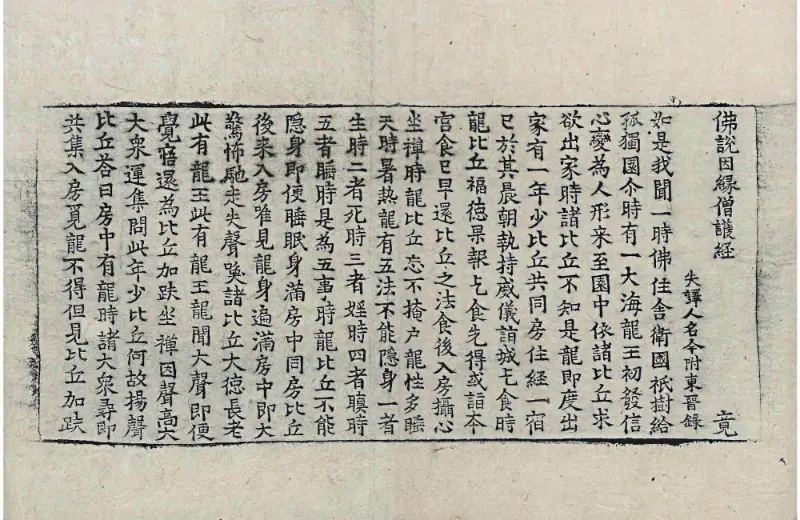 佛說因緣僧護經
竟
失譯人名今附東晉錄
如是我聞一時佛住舍衛國祇樹給
孤獨園尒時有一大海龍王初發信
心變為人形来至園中依諸比丘求
欲出家時諸比丘不知是龍即度出
家有一年少比丘共同房住經一宿
已於其晨朝執持威儀詣城乞食時
龍比丘福德果報乞食先得或詣本
宮食已早還比丘之法食後入房攝心
坐禪時龍比丘忘不掩户龍性多睡
天時暑熱龍有五法不能隱身一者
生時二者死時三者婬時四者瞋時
五者睡時是為五事時龍比丘不能
隱身即便睡眠身滿房中同房比丘
後来入房唯見龍身遍滿房中即大
驚怖馳走失聲喚諸比丘大德長老
此有龍王此有龍王龍聞大聲即便
覺寤還為比丘加趺坐禪因聲高大
大衆運集問此年少比丘何故揚聲
比丘荅曰房中有龍時諸大衆尋即
共集入房覓龍不得但見比丘加趺